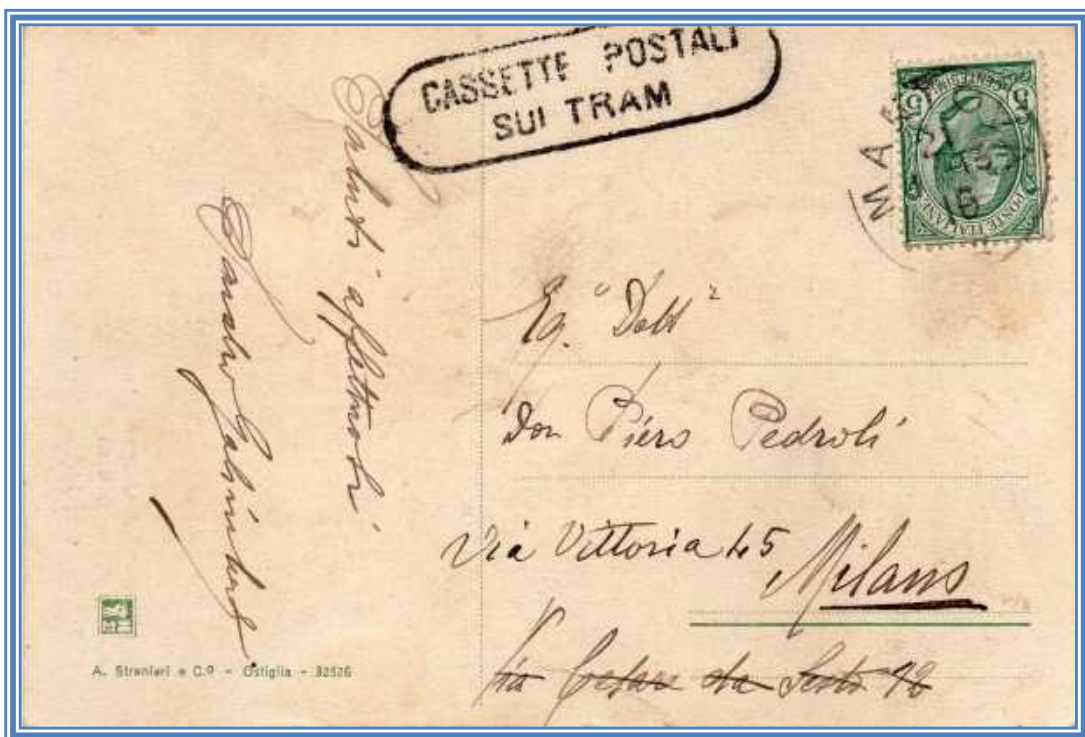 CASSETTE POSTALI
SUI TRAM
POSTE ITALIANE
5 5
Saluti affettuosi
Eg. Dott
Don Piero Pedroli
Via Vittoria 45
Milano
Via Cesare da Sesto 12
A. Stranieri e C.º - Ostiglia - 32526